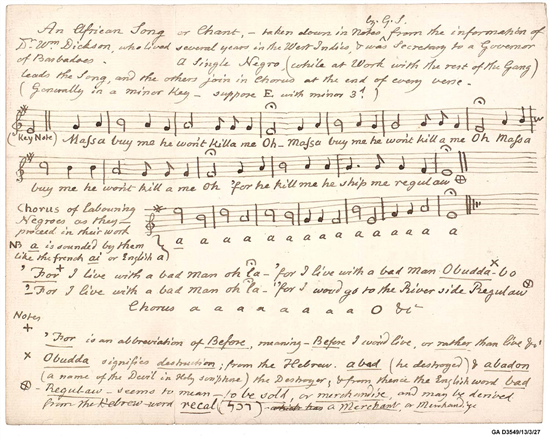 by G.S.
An African Song or Chant, – taken down in Notes, ^ from the information of
Dr. Wm Dickson, who lived several years in the West Indies, & was Secretary to a Governor
of Barbadoes. A Single Negro, (while at Work with the rest of the Gang)
leads the Song, and the others join in Chorus at the end of every verse.
(Generally in a minor Key – suppose E with minor 3d.)
(Key Note) Massa buy me he won't killa me Oh – Massa buy me he won't killa me Oh Massa
buy me he won't kill a me Oh 'for he kill me he ship me regulaw ⊗
Chorus of labouring
Negroes as they
proceed in their work
a a a a a a a a a a a a
NB a is sounded by them
like the french ai or English a
'For + I live with a bad man oh la – 'for I live with a bad man Obudda x – bo
'For I live with a bad man oh la – 'for I would go to the River side Regulaw ⊗
Chorus a a a a a a a O &c
Notes
+ 'For is an abbreviation of Before, meaning – Before I would live, or rather than live &c
x Obudda signifies destruction; from the Hebrew. abad (he destroyed) & abadon
(a name of the Devil in Holy scripture) the Destroyer; & from thence the English word bad
⊗ Regulaw – seems to mean – to be sold, or merchandise, and may be derived
from the Hebrew word recal (רכל) a Merchant, or Merchandize
GA D3549/13/3/27